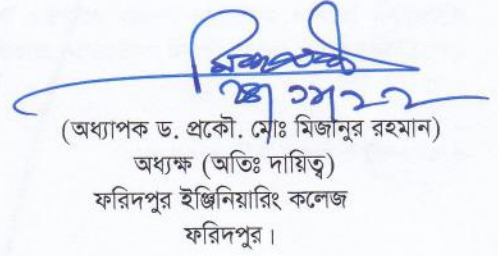 (অধ্যাপক ড. প্রকৌ. মোঃ মিজানুর রহমান)
অধ্যক্ষ (অতিঃ দায়িত্ব)
ফরিদপুর ইঞ্জিনিয়ারিং কলেজ
ফরিদপুর।